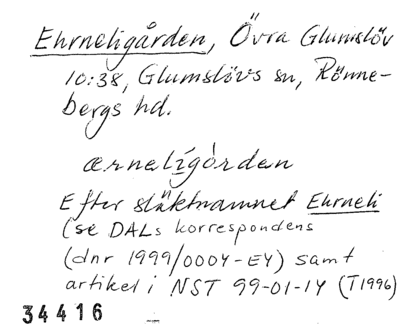 Ehrneligården, Övra Glumslöv
10:38, Glumslövs sn, Rönne-
bergs hd.
ærnelígȯrden
Efter släktnamnet Ehrneli
(se DALs korrespondens
(dnr 1999/0004-EY) samt
artikel i NST 99-01-14 (T1996)
34416